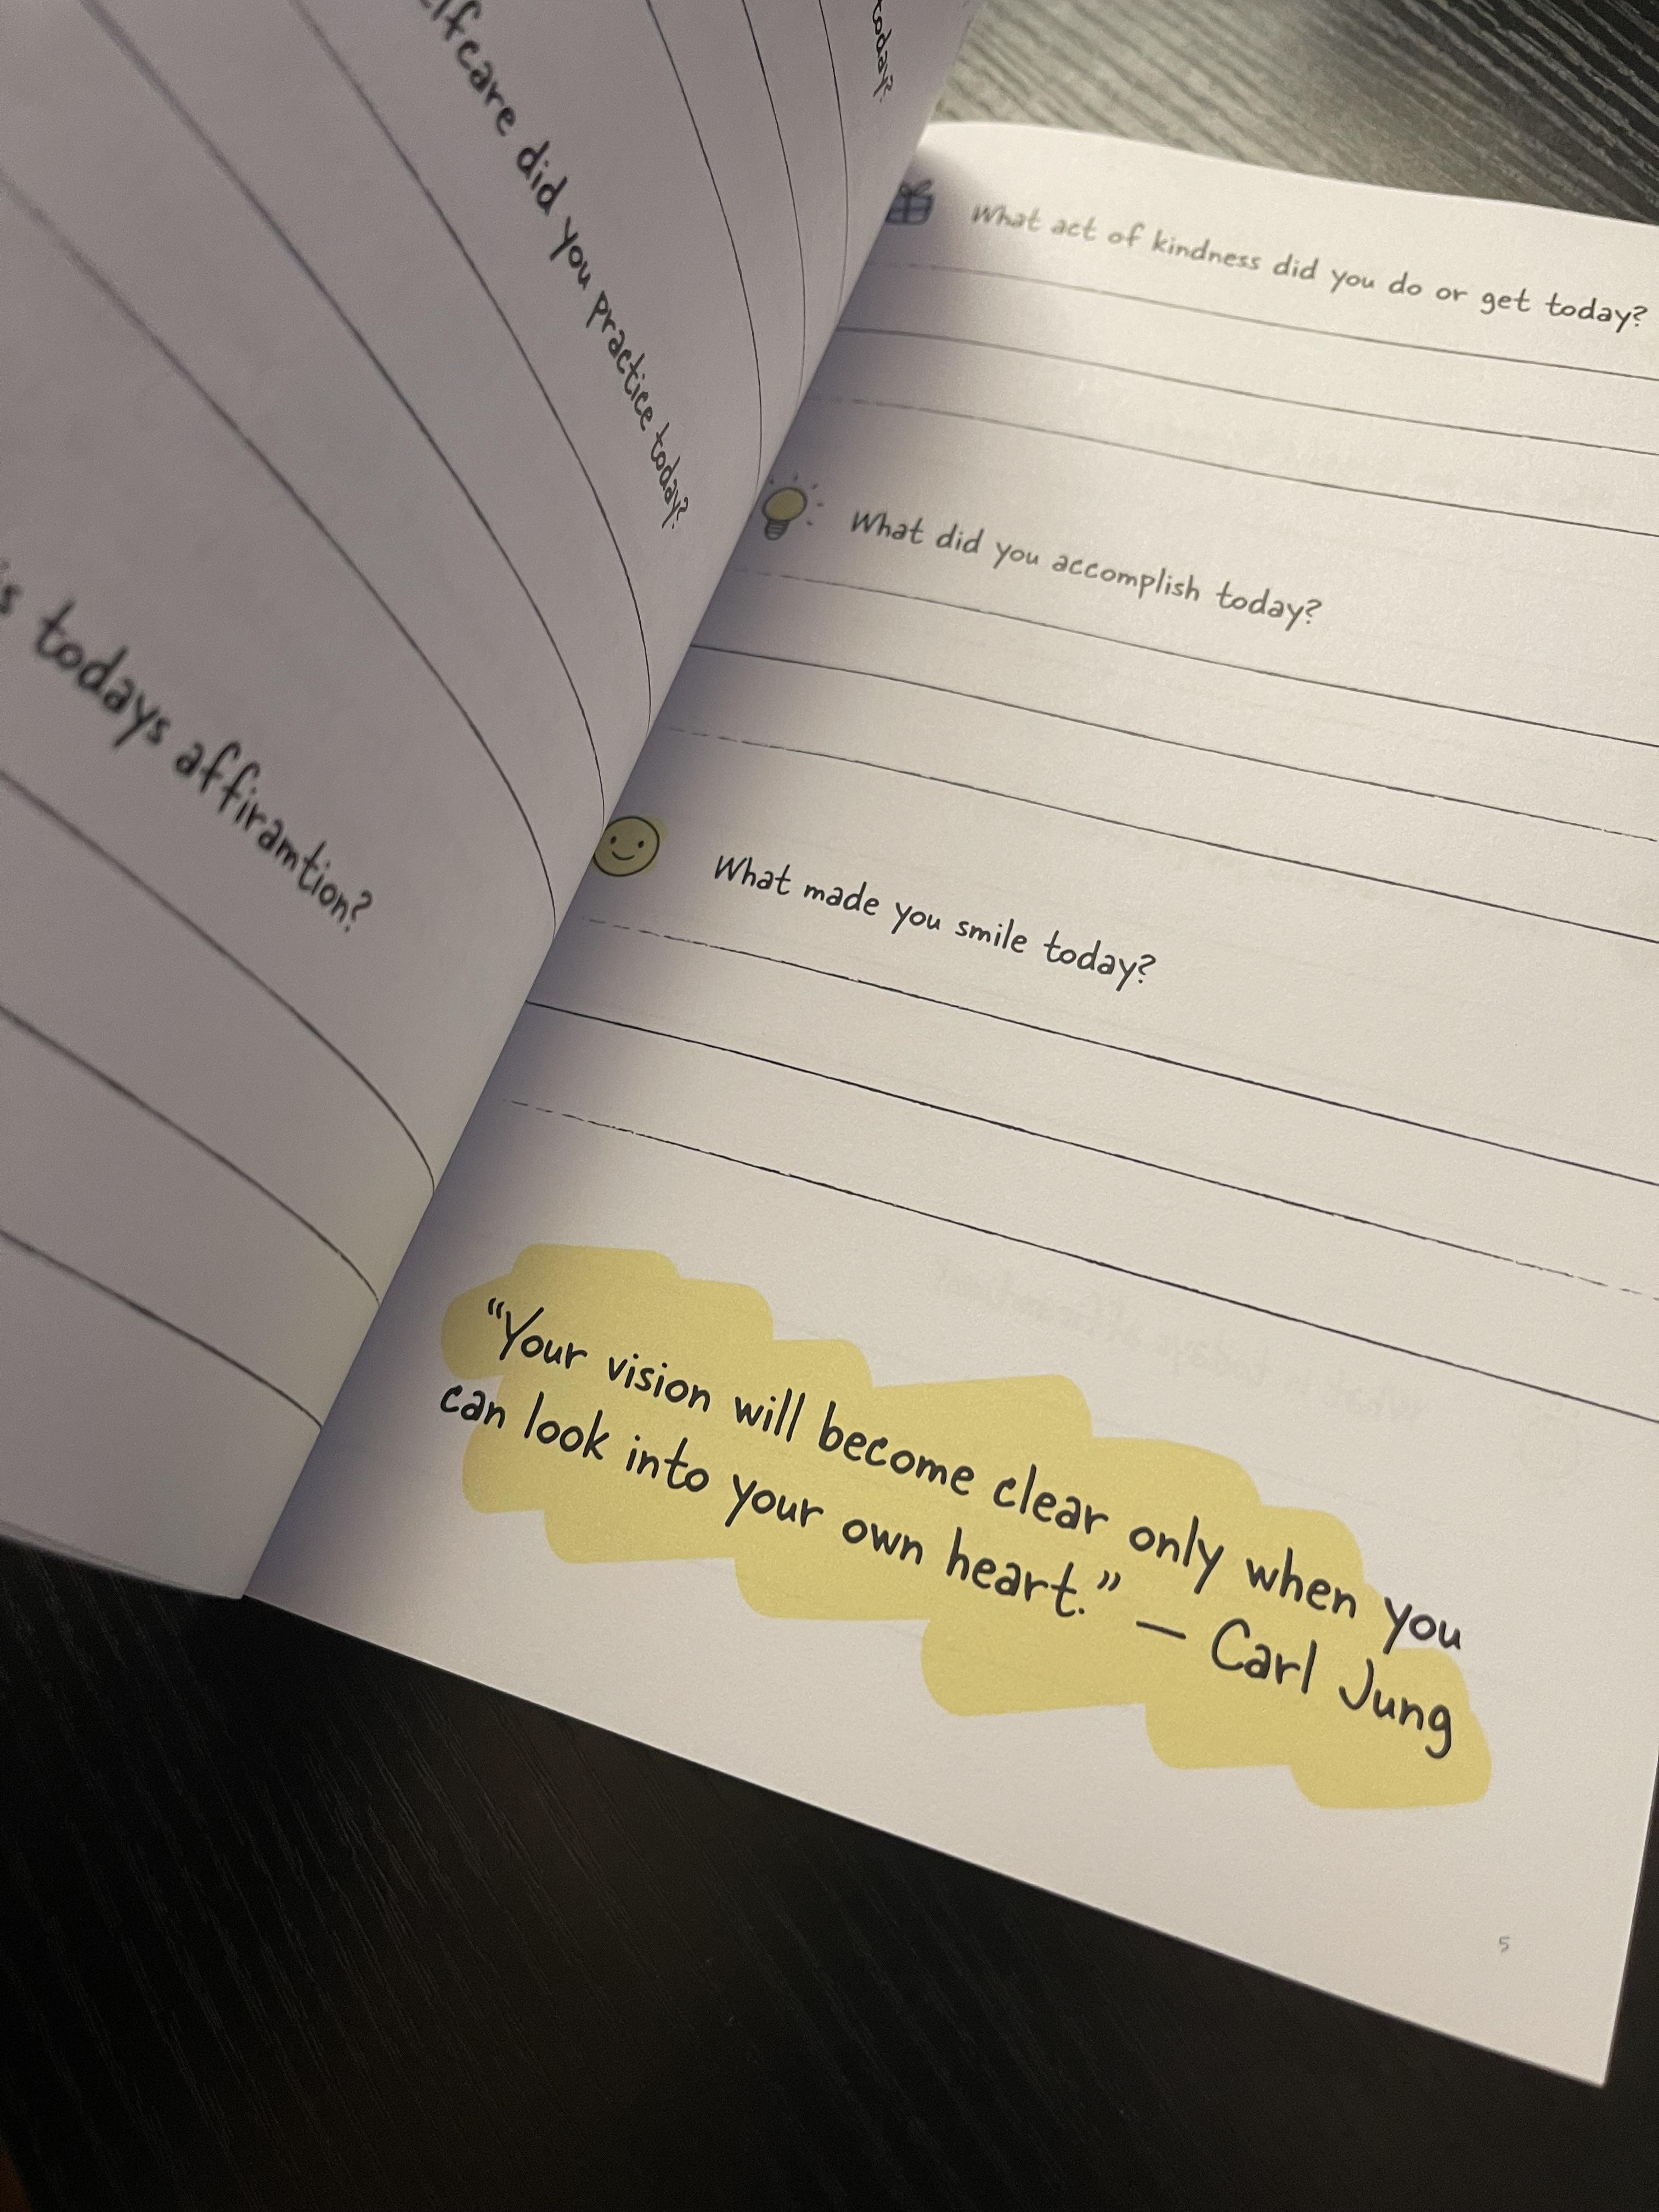 today?
care did you practice today?
todays affiramtion?
What act of kindness did you do or get today?
What did you accomplish today?
What made you smile today?
“Your vision will become clear only when you
can look into your own heart.” — Carl Jung
5